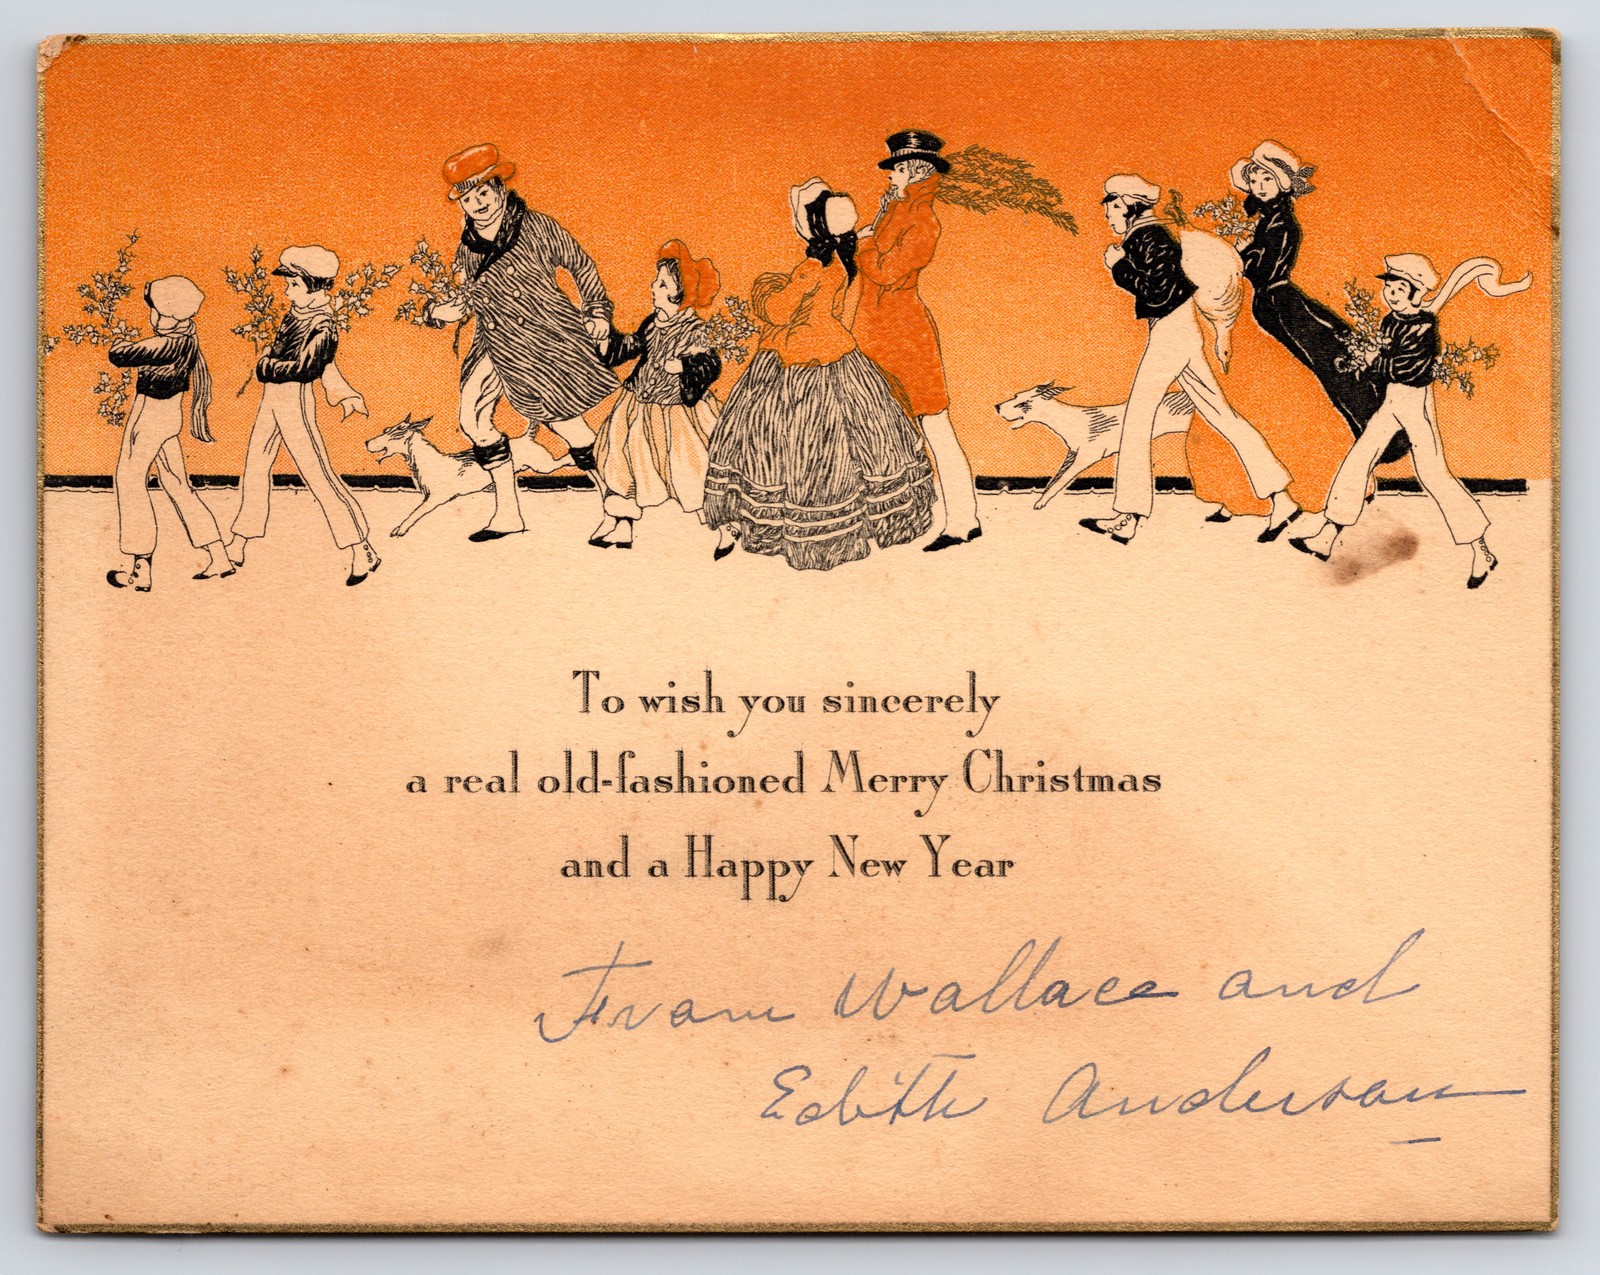 To wish you sincerely
a real old-fashioned Merry Christmas
and a Happy New Year
From Wallace and
Edith Anderson